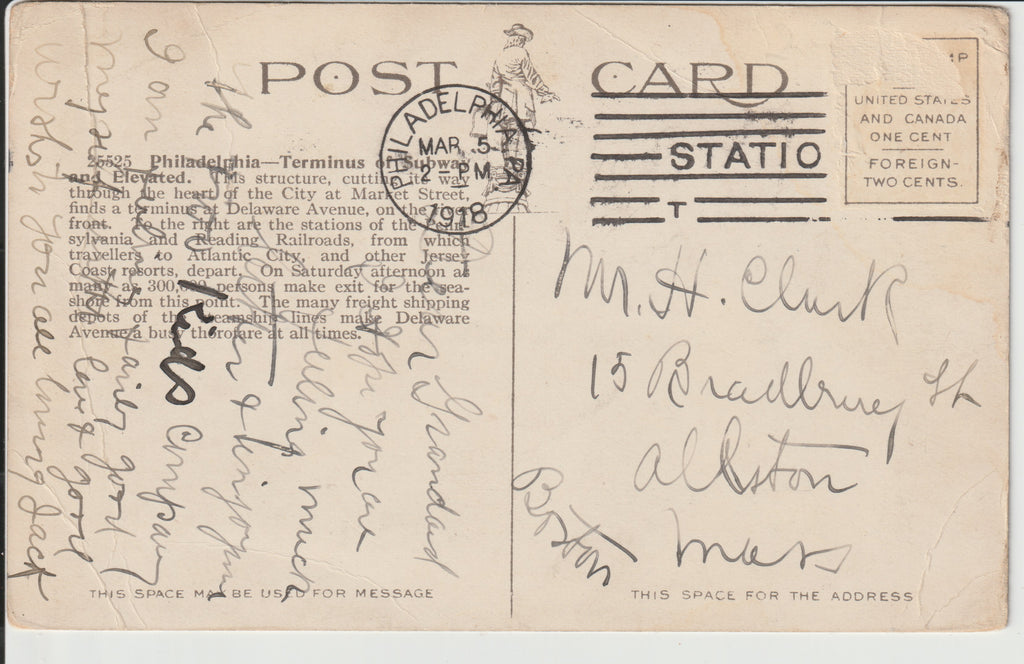 POST CARD
PHILADELPHIA, PA.
MAR. 5
2 - PM
1918
STATIO
T
UNITED STATES
AND CANADA
ONE CENT
FOREIGN-
TWO CENTS.
25525 Philadelphia—Terminus of Subway
and Elevated. This structure, cutting its way
through the heart of the City at Market Street,
finds a terminus at Delaware Avenue, on the
front. To the right are the stations of the Penn-
sylvania and Reading Railroads, from which
travellers to Atlantic City, and other Jersey
Coast resorts, depart. On Saturday afternoon as
many as 300,000 persons make exit for the sea-
shore from this point. The many freight shipping
depots of the steamship lines make Delaware
Avenue a busy thorofare at all times.
Grandad
hope you are
feeling much
better & enjoying
the kids company
I am fairly good
myself love & good
wishes you all loving Jack
Mr. H. Clark
15 Bradbury St
Allston
Boston
Mass
THIS SPACE MAY BE USED FOR MESSAGE
THIS SPACE FOR THE ADDRESS